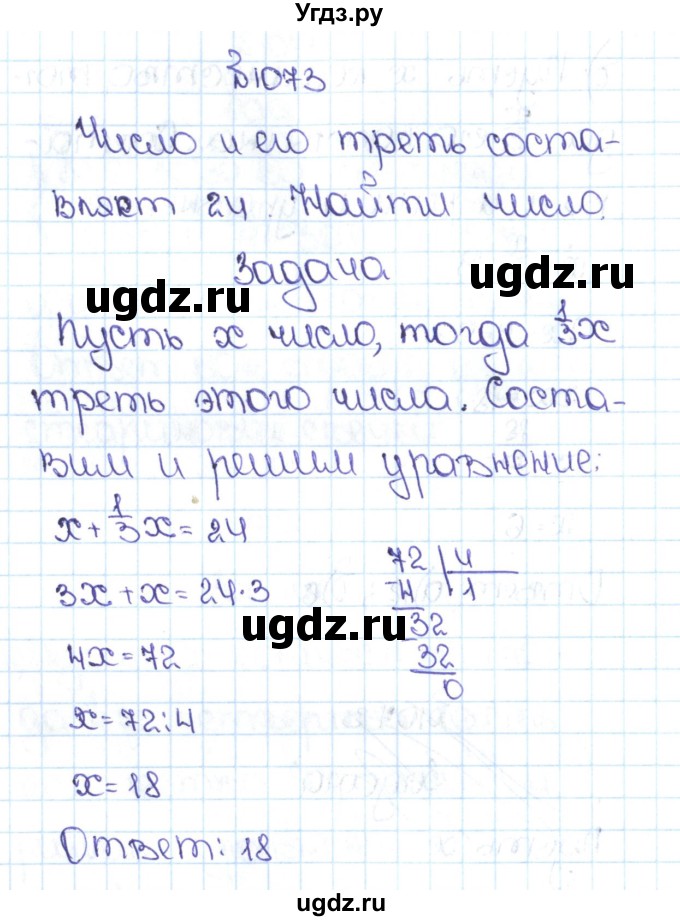 Угдз.ру
№1073
Число и его треть соста-
вляет 24. Найти число.
Задача
ugdz.ru
Пусть x число, тогда 1/3x
треть этого числа. Соста-
вим и решим уравнение:
x+1/3x=24
3x+x=24·3
ugdz.ru
4x=72
x=72:4
x=18
72 4
-4 1
32
32
0
Ответ: 18
ugdz.ru